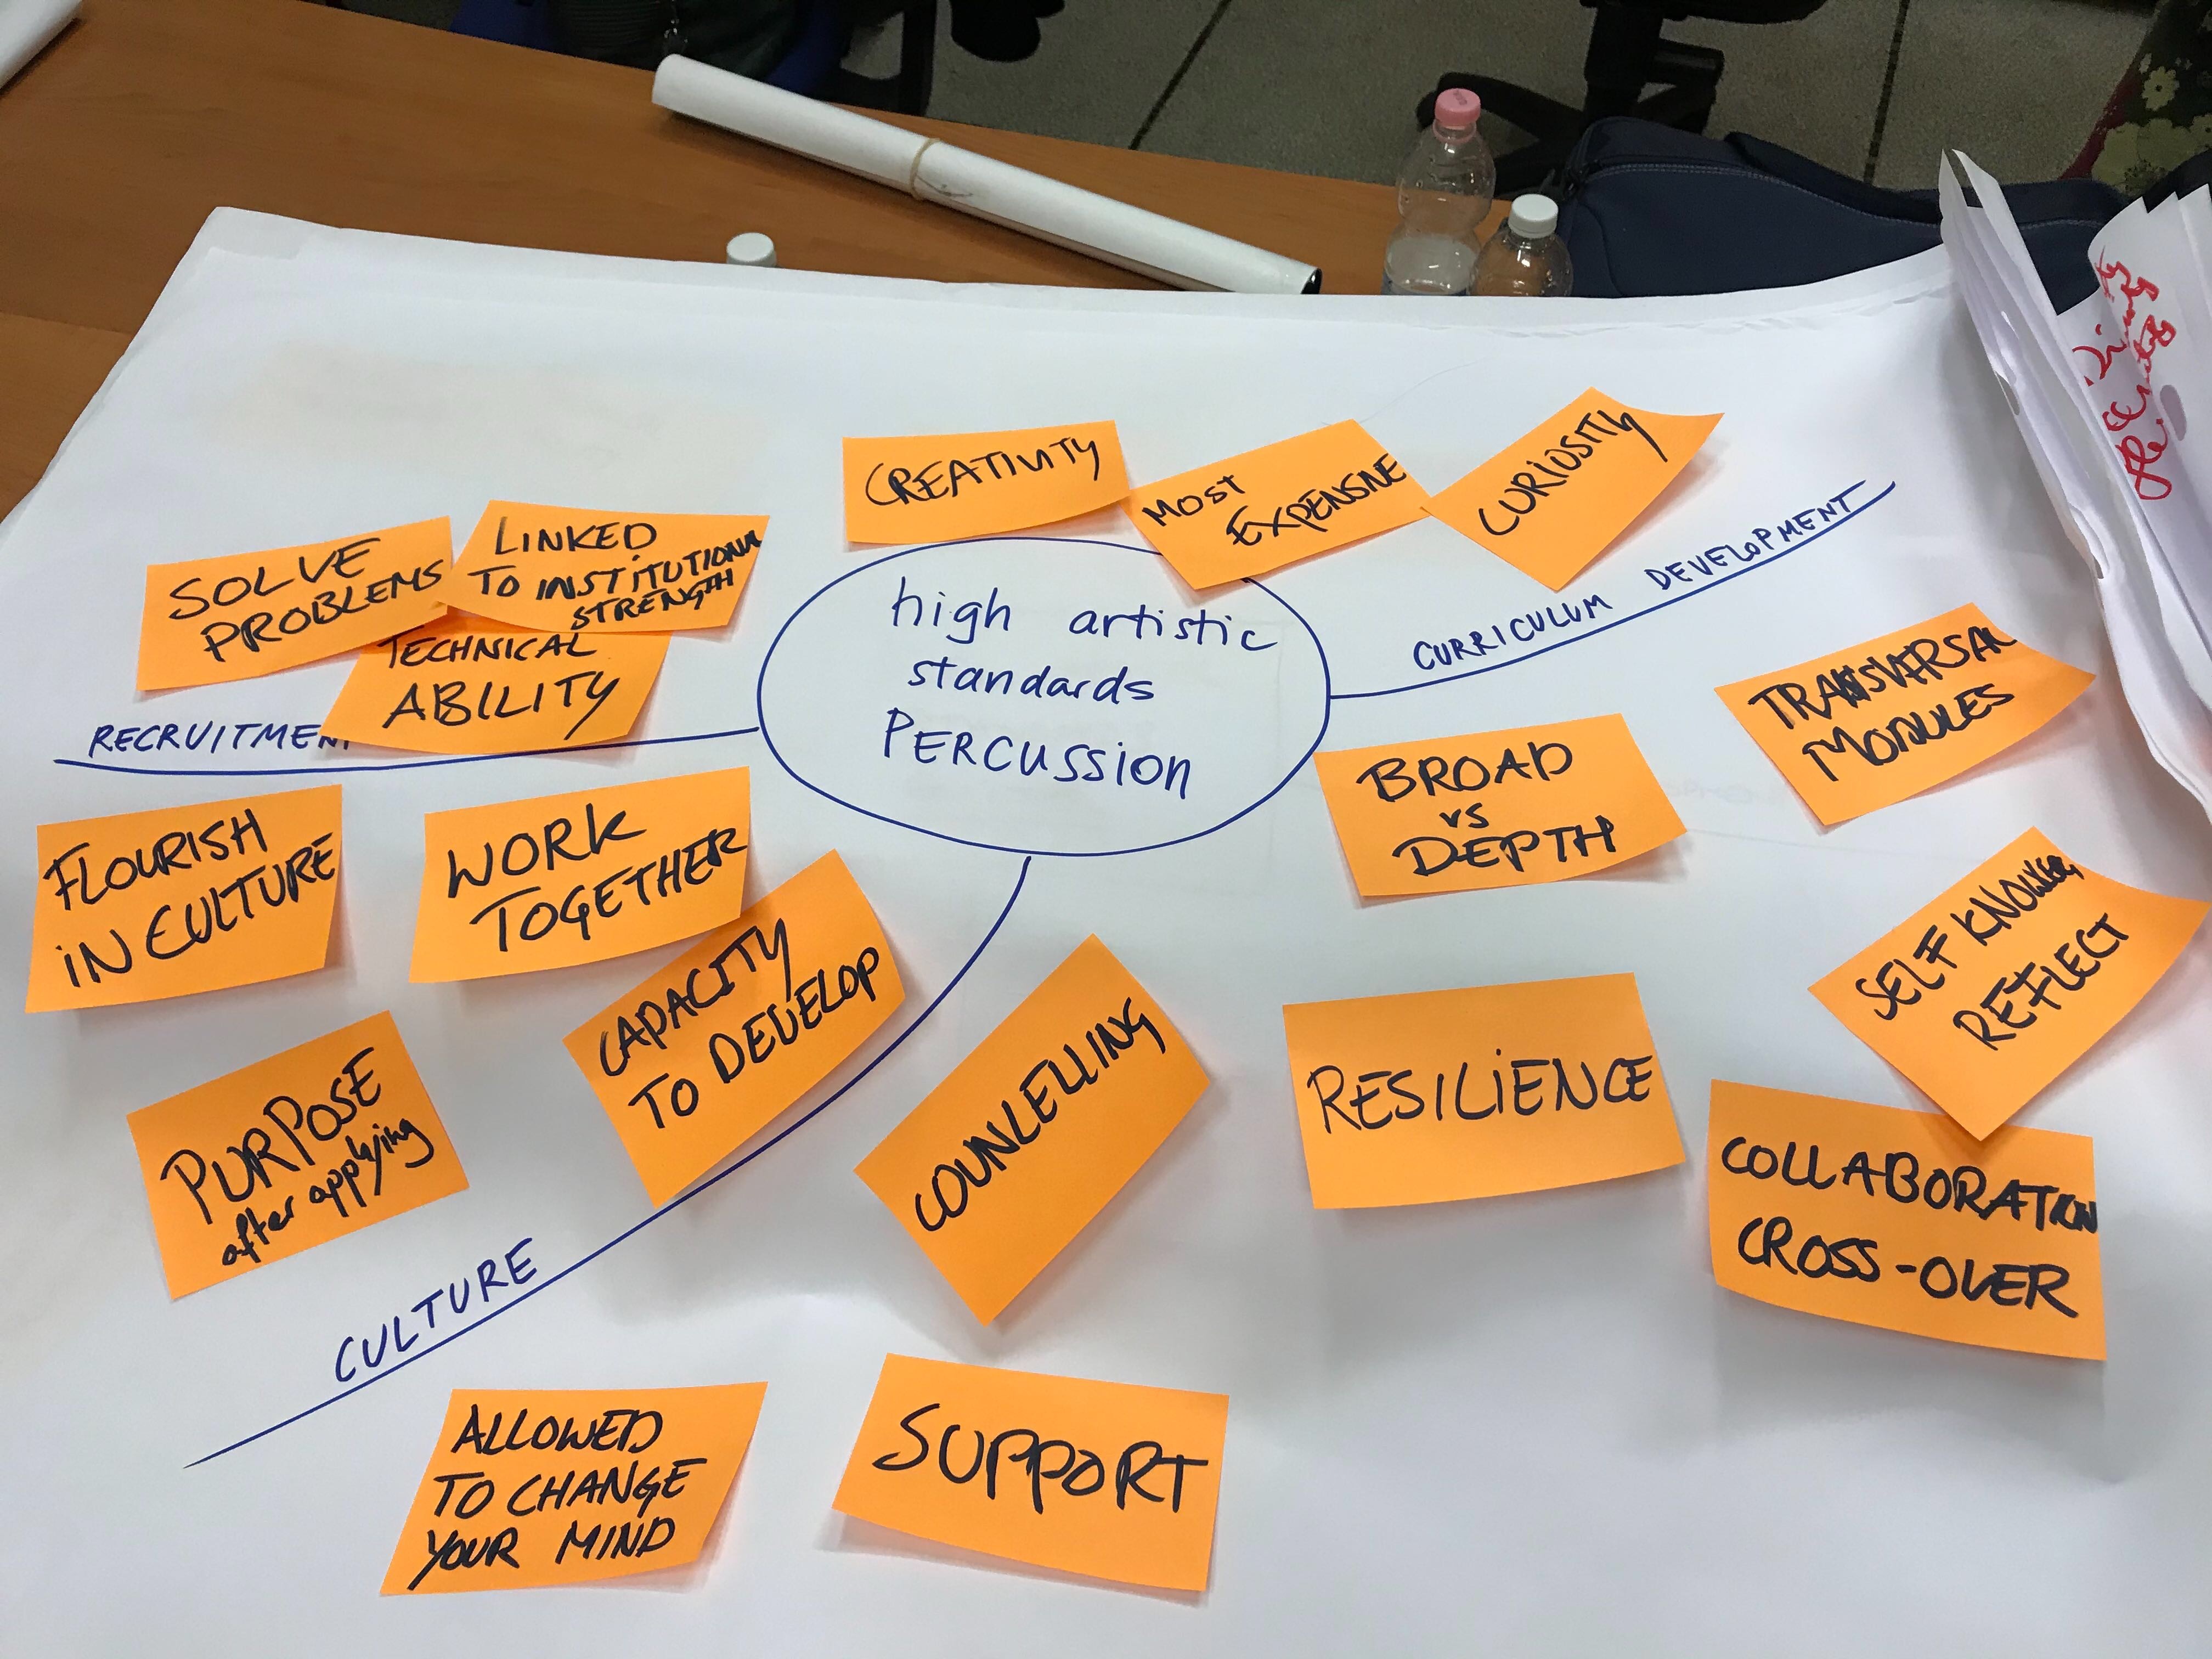 CREATIVITY
MOST
EXPENSIVE
CURIOSITY
SOLVE
PROBLEMS
LINKED
TO INSTITUTIONAL
STRENGTH
TECHNICAL
ABILITY
RECRUITMENT
high artistic
standards
PERCUSSION
CURRICULUM DEVELOPMENT
TRANSVERSAL
MODULES
BROAD
vs
DEPTH
FLOURISH
IN CULTURE
WORK
TOGETHER
CAPACITY
TO DEVELOP
SELF
REFLECT
PURPOSE
after applying
COUNLELLING
RESILIENCE
COLLABORATION
CROSS-OVER
CULTURE
ALLOWED
TO CHANGE
YOUR MIND
SUPPORT